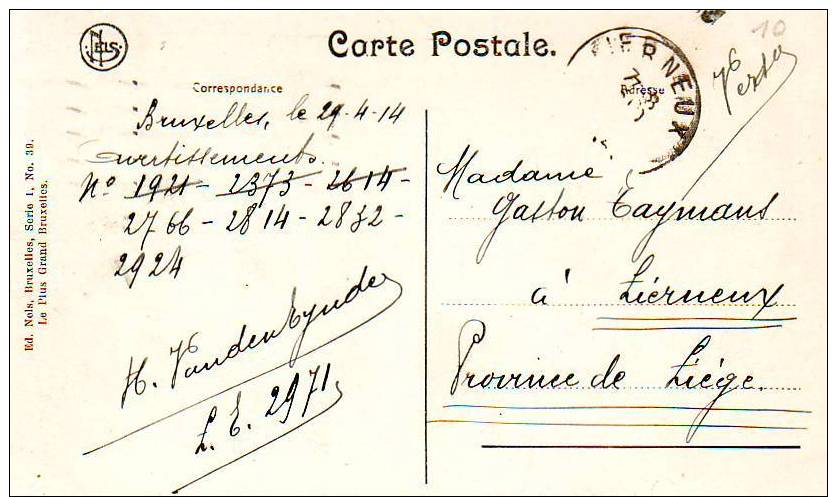 NELS
Carte Postale.
10
Correspondance
Adresse
LIERNEUX
Bruxelles, le 29-4-14
avertissements
N° 1921 - 2373 - 2614 -
2766 - 2814 - 2832 -
2924
H. VandenEynde
L. E. 2971
Madame
Gaston Taymans
à Lierneux
Province de Liége.
Ed. Nels, Bruxelles, Serie 1, No. 39.
Le Plus Grand Bruxelles.